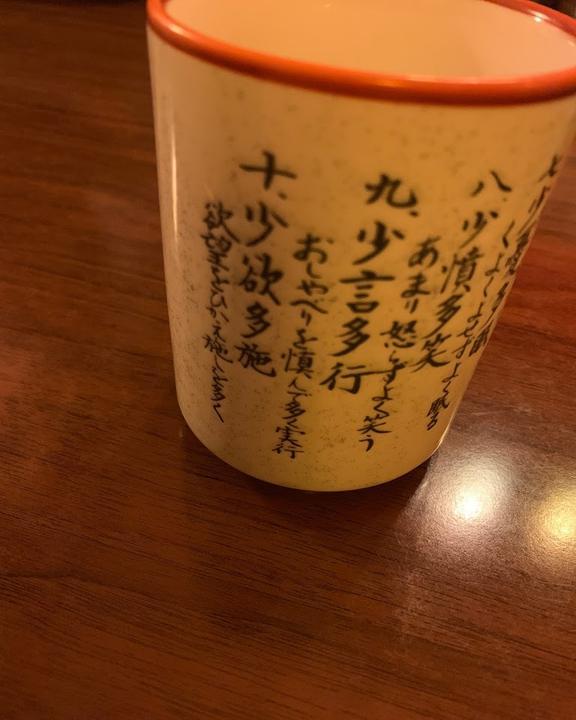 七、少
くよくよせずよく眠る
八、少憤多笑
あまり怒らずよく笑う
九、少言多行
おしゃべりを慎んで多く実行
十、少欲多施
欲望をひかえ施しを多く